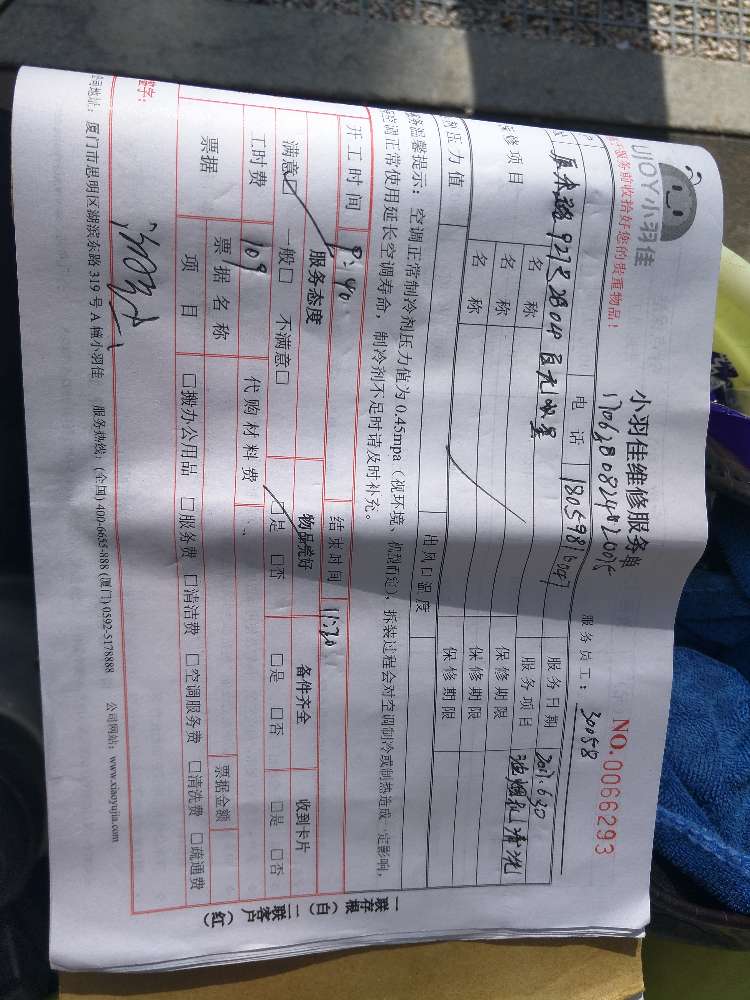 UJOY小羽佳
小羽佳维修服务单
NO.0066293
服务前收拾好您的贵重物品！
170630082421200
服务员工：30058
电话 18059816047
服务日期 2017.6.30
927 2B04
服务项目 油烟机清洗
维修项目 名称 保修期限
名称 保修期限
名称 保修期限
剂压力值 出风口温度 保修期限
温馨提示：空调正常制冷剂压力值为0.45mpa（视环境、机现而定），拆装过程会对空调制冷或制热造成一定影响，
空调正常使用延长空调寿命，制冷剂不足时请及时补充。
开工时间 8:40 结束时间 11:30
服务态度 物品完好 备件齐全 收到卡片
满意□ 一般□ 不满意□ □是 □否 □是 □否 □是 □否
工时费 109 代购材料费
票据 票据名称 票据金额
项目 □搬办公用品 □服务费 □清洁费 □空调服务费 □清洗费 □疏通费
签字：
公司地址：厦门市思明区湖滨东路319号A幢小羽佳 服务热线：(全国) 400-6655-888 (厦门) 0592-5178888 公司网站：www.xiaoyujia.com
一联存根（白）二联客户（红）